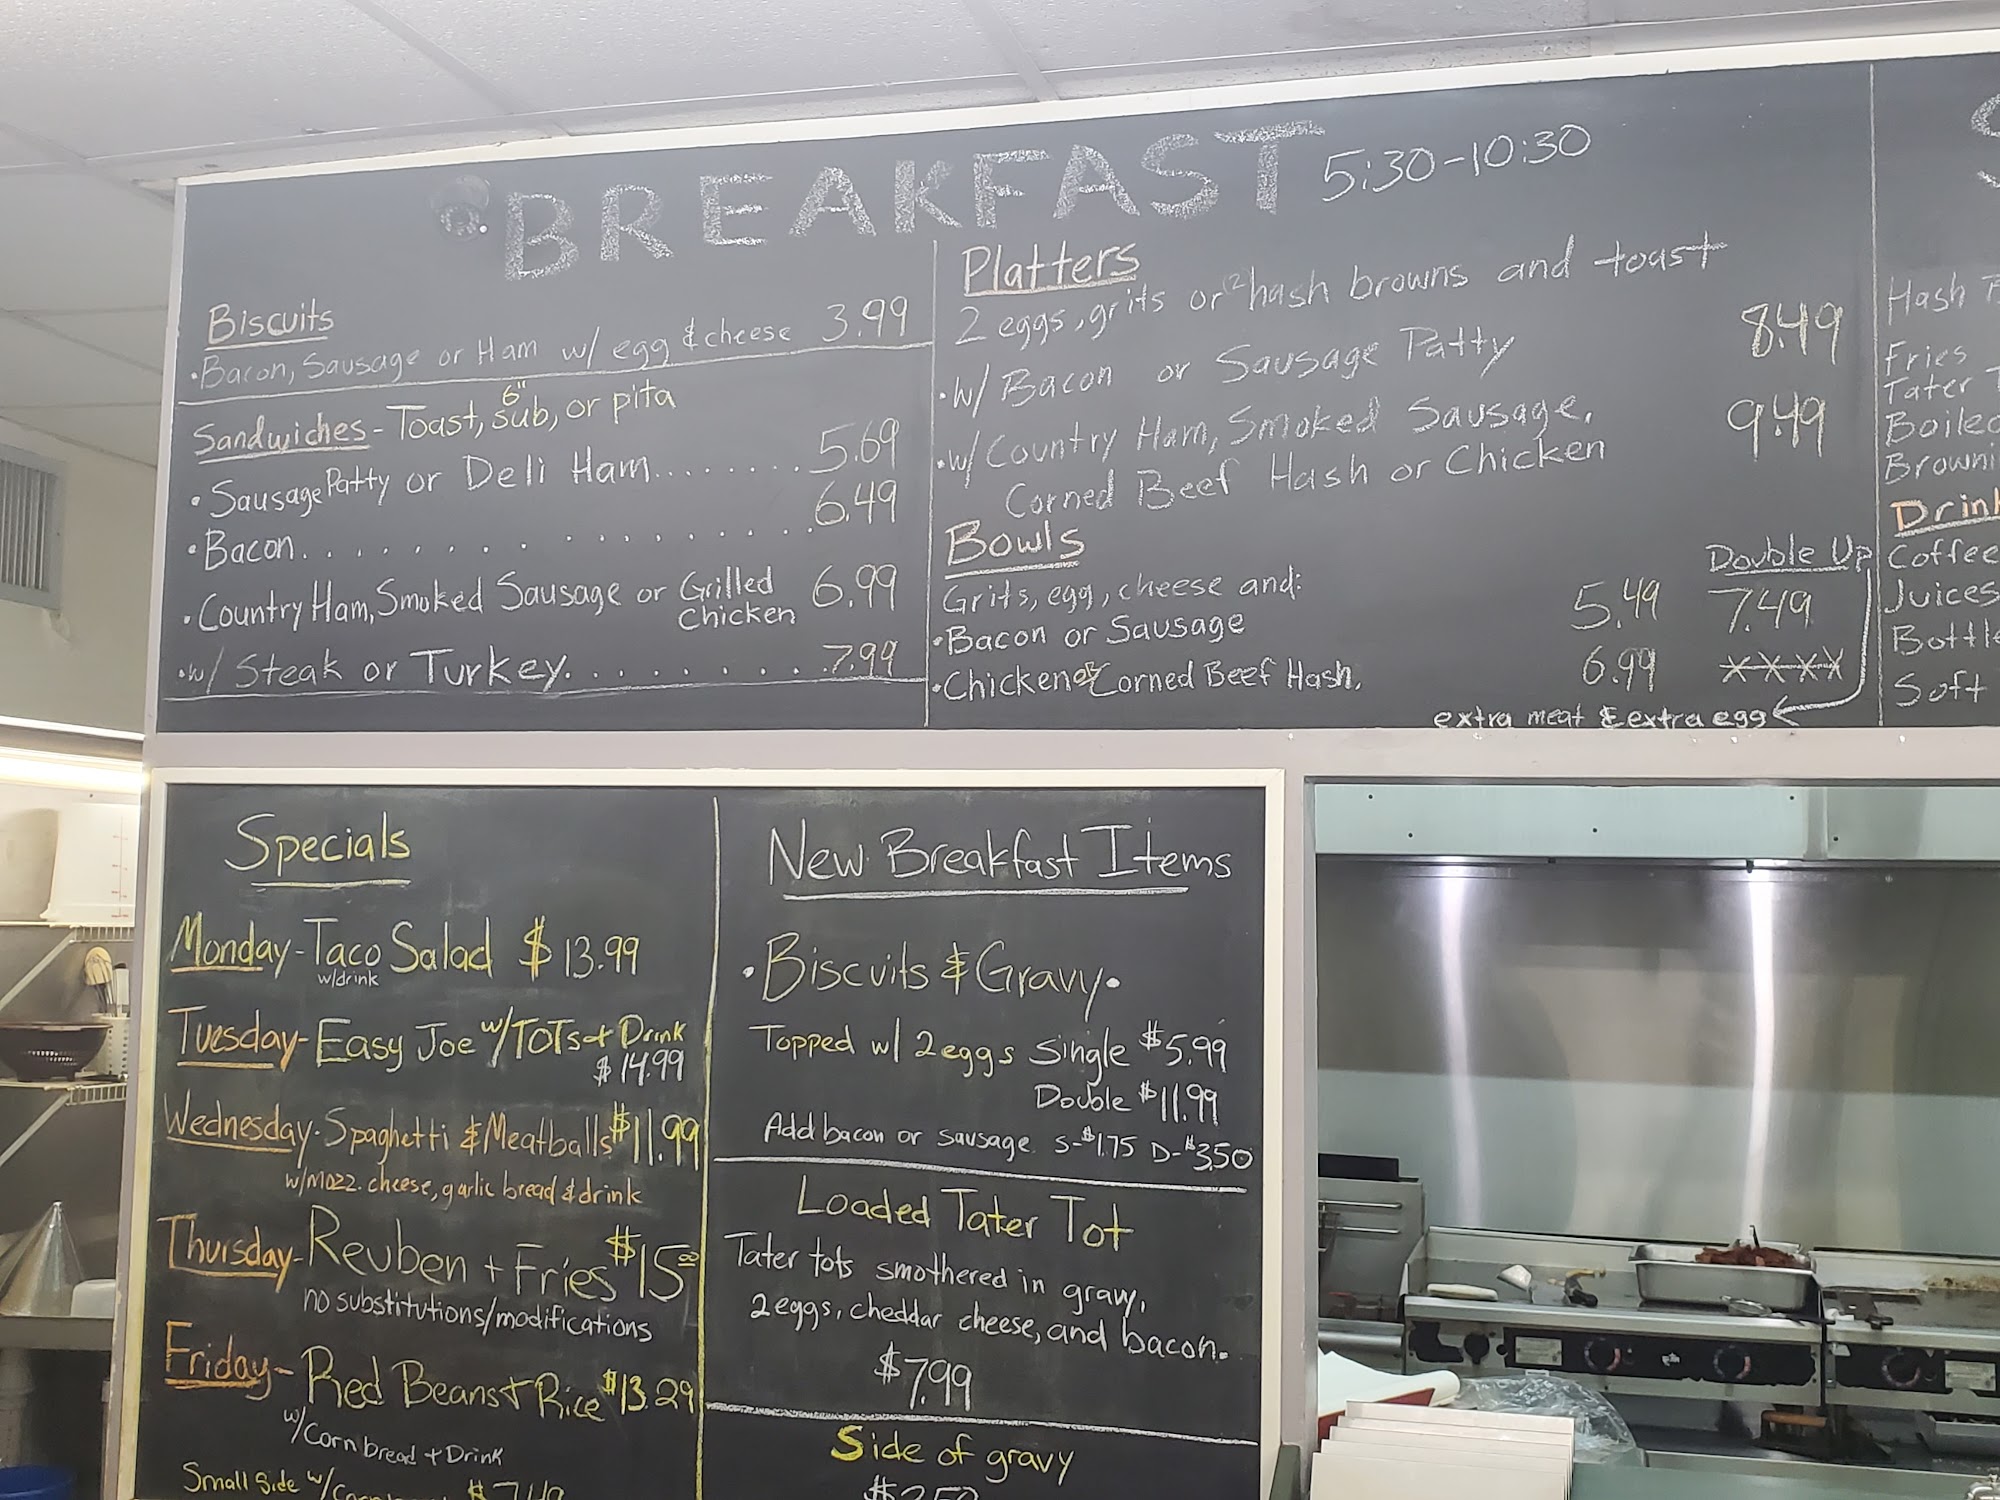 BREAKFAST 5:30-10:30
Biscuits
•Bacon, Sausage or Ham w/ egg & cheese 3.99
Sandwiches - Toast, 6" sub, or pita
•Sausage Patty or Deli Ham........ 5.69
•Bacon.................. 6.49
•Country Ham, Smoked Sausage or Grilled Chicken 6.99
•w/ Steak or Turkey......... 7.99
Platters
2 eggs, grits or (2) hash browns and toast
•w/ Bacon or Sausage Patty 8.49
•w/ Country Ham, Smoked Sausage, 9.49
Corned Beef Hash or Chicken
Bowls
Double Up
Grits, egg, cheese and:
•Bacon or Sausage 5.49 7.49
•Chicken or Corned Beef Hash. 6.99 XXXX
extra meat & extra egg
Hash
Fries
Tater
Boiled
Drink
Coffee
Juices
Soft
Specials
Monday - Taco Salad $13.99
w/drink
Tuesday - Easy Joe w/TOTs + Drink
$14.99
Wednesday - Spaghetti & Meatballs $11.99
w/mozz. cheese, garlic bread & drink
Thursday - Reuben + Fries $15.00
no substitutions/modifications
Friday - Red Beans + Rice $13.29
w/Corn bread + Drink
Small side w/ $7.49
New Breakfast Items
•Biscuits & Gravy•
Topped w/ 2 eggs Single $5.99
Double $11.99
Add bacon or sausage S-$1.75 D-$3.50
Loaded Tater Tot
Tater tots smothered in gravy,
2 eggs, cheddar cheese, and bacon.
$7.99
Side of gravy
$2.50